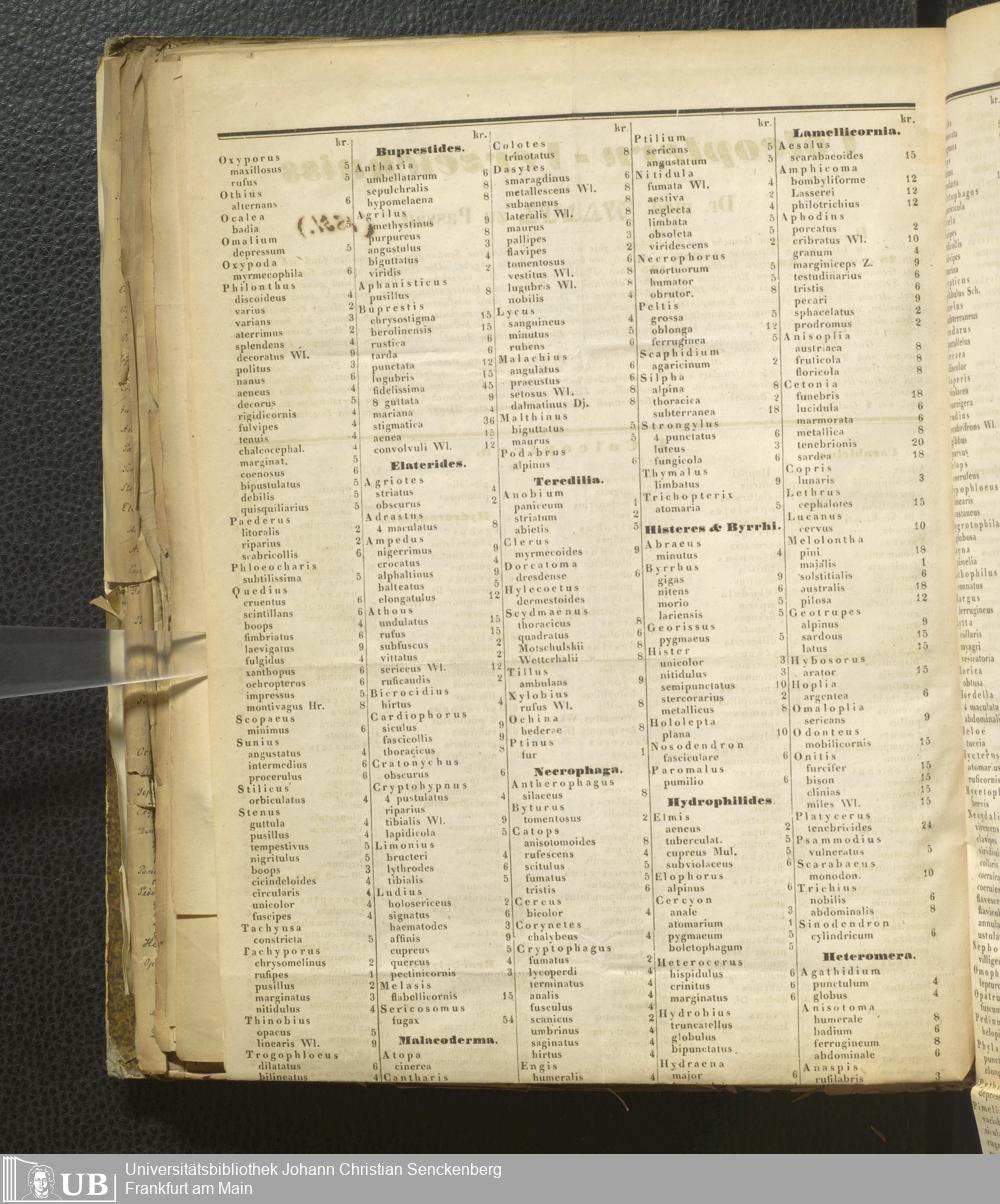 kr.
Oxyporus
maxillosus 5
rufus 5
Othius
alternans 6
Ocalea
badia 5
Omalium
depressum 5
Oxypoda
myrmecophila 6
Philonthus
discoideus 4
varius 2
varians 3
aterrimus 2
splendens 4
decoratus Wl. 9
politus 3
nanus 6
aeneus 4
decorus 5
rigidicornis 4
fulvipes 4
tenuis 4
chalcocephal. 4
marginat. 5
coenosus 6
bipustulatus 5
debilis 5
quisquiliarius 5
Paederus
litoralis 2
riparius 2
scabricollis 6
Phloeocharis
subtilissima 5
Quedius
cruentus 6
scintillans 6
boops 4
fimbriatus 6
laevigatus 9
fulgidus 4
xanthopus 6
ochropterus 6
impressus 5
montivagus Hr. 8
Scopaeus
minimus 6
Sunius
angustatus 4
intermedius 6
procerulus 6
Stilicus
orbiculatus 4
Stenus
guttula 4
pusillus 4
tempestivus 5
nigritulus 5
boops 3
cicindeloides 4
circularis 4
unicolor 4
fuscipes 4
Tachyusa
constricta 5
Tachyporus
chrysomelinus 2
rufipes 1
pusillus 2
marginatus 3
nitidulus 4
Thinobius
opacus 5
linearis Wl. 9
Trogophloeus
dilatatus 6
bilineatus 4
kr.
Buprestides.
Anthaxia
umbellatarum 6
sepulchralis 8
hypomelaena 8
Agrilus
amethystinus 9
purpureus 8
angustulus 3
biguttatus 4
viridis 2
Aphanisticus
pusillus 8
Buprestis
chrysostigma 15
berolinensis 15
rustica 6
tarda 6
punctata 12
lugubris 15
fidelissima 45
8 guttata 9
mariana 4
stigmatica 36
aenea 15
convolvuli Wl. 12
Elaterides.
Agriotes
striatus 4
obscurus 2
Adrastus
4 maculatus 8
Ampedus
nigerrimus 9
crocatus 4
alphaltinus 9
balteatus 5
elongatulus 12
Athous
undulatus 15
rufus 15
subfuscus 2
vittatus 2
sericeus Wl. 12
ruficaudis 2
Bicrocidius
hirtus 4
Cardiophorus
siculus 9
fascicollis 9
thoracicus 8
Cratonychus
obscurus 6
Cryptohypnus
4 pustulatus 4
riparius
tibialis Wl. 9
lapidicola 5
Limonius
bructeri 4
lythrodes 6
tibialis 5
Ludius
holosericeus 2
signatus 6
haematodes 3
affinis 9
cupreus 5
quercus 4
pectinicornis 3
Melasis
flabellicornis 15
Sericosomus
fugax 54
Malacoderma.
Atopa
cinerea
Cantharis
kr.
Colotes
trinotatus 8
Dasytes
smaragdinus 6
metallescens Wl. 8
subaeneus 8
lateralis Wl. 8
maurus 6
pallipes 3
flavipes 2
tomentosus 6
vestitus Wl. 8
lugubris Wl. 8
nobilis 4
Lycus
sanguineus 4
minutus 5
rubens 6
Malachius
angulatus 6
praeustus 6
setosus Wl. 8
dalmatinus Dj. 8
Malthinus
biguttatus 5
maurus 5
Podabrus
alpinus 6
Teredilia.
Anobium
paniceum 1
striatum 2
abietis 5
Clerus
myrmecoides 9
Dorcatoma
dresdense 6
Hylecoetus
dermestoides
Scydmaenus
thoracicus 8
quadratus 6
Motschulskii 8
Wetterhalii 8
Tillus
ambulans 9
Xylobius
rufus Wl. 8
Ochina
hederae 8
Ptinus
fur 1
Necrophaga.
Antherophagus
silaceus 8
Byturus
tomentosus 2
Catops
anisotomoides 8
rufescens 4
scitulus 5
fumatus 5
tristis 6
Cercus
bicolor 4
Corynetes
chalybeus 4
Cryptophagus
fumatus 2
lycoperdi 4
terminatus 4
analis 4
fusculus 4
scanicus 2
umbrinus 4
saginatus 4
hirtus 4
Engis
humeralis 4
kr.
Ptilium
sericans 5
angustatum 5
Nitidula
fumata Wl. 4
aestiva 2
neglecta 4
limbata 5
obsoleta 3
viridescens 2
Necrophorus
mortuorum 5
humator 5
obrutor. 8
Peltis
grossa 5
oblonga 12
ferruginea 5
Scaphidium
agaricinum 2
Silpha
alpina 8
thoracica 2
subterranea 18
Strongylus
4 punctatus 6
luteus 3
fungicola 6
Thymalus
limbatus 9
Trichopterix
atomaria 5
Histeres & Byrrhi.
Abraeus
minutus 4
Byrrhus
gigas 9
nitens 6
morio 5
lariensis 5
Georissus
pygmaeus 5
Hister
unicolor 3
nitidulus 3
semipunctatus 10
stercorarius 2
metallicus 8
Hololepta
plana 10
Nosodendron
fasciculare 6
Paromalus
pumilio 6
Hydrophilides
Elmis
aeneus 2
tuberculat. 5
cupreus Mul. 5
subviolaceus 6
Elophorus
alpinus 6
Cercyon
anale 3
atomarium 1
pygmaeum 5
boletophagum 5
Heterocerus
hispidulus 6
crinitus 6
marginatus 6
Hydrobius
truncatellus
globulus
bipunctatus
Hydraena
major 6
kr.
Lamellicornia.
Aesalus
scarabaeoides 15
Amphicoma
bombyliforme 12
Lasserei 12
philotrichius 12
Aphodins
porcatus 2
cribratus Wl. 10
granum 4
marginiceps Z. 9
testudinarius 6
tristis 6
pecari 9
sphacelatus 2
prodromus 2
Anisoplia
austriaca 8
fruticola 8
floricola 8
Cetonia
funebris 18
lucidula 6
marmorata 6
metallica 8
tenebrionis 20
sardea 18
Copris
lunaris 3
Lethrus
cephalotes 15
Lucanus
cervus 10
Melolontha
pini 18
majalis 1
solstitialis 6
australis 18
pilosa 12
Geotrupes
alpinus 9
sardous 15
latus 15
Hybosorus
arator 15
Hoplia
argentea 6
Omaloplia
sericans 9
Odonteus
mobilicornis 15
Onitis
furcifer 15
bison 15
clinias 15
miles Wl. 15
Platycerus
tenebricides 24
Psammodius
vulneratus 5
Scarabaeus
monodon. 10
Trichius
nobilis 6
abdominalis 8
Sinodendron
cylindricum 6
Heteromera.
Agathidium
punctulum 4
globus 4
Anisotoma
humerale 8
badium 6
ferrugineum 8
abdominale 6
Anaspis
rufilabris 3
UB
Universitätsbibliothek Johann Christian Senckenberg
Frankfurt am Main